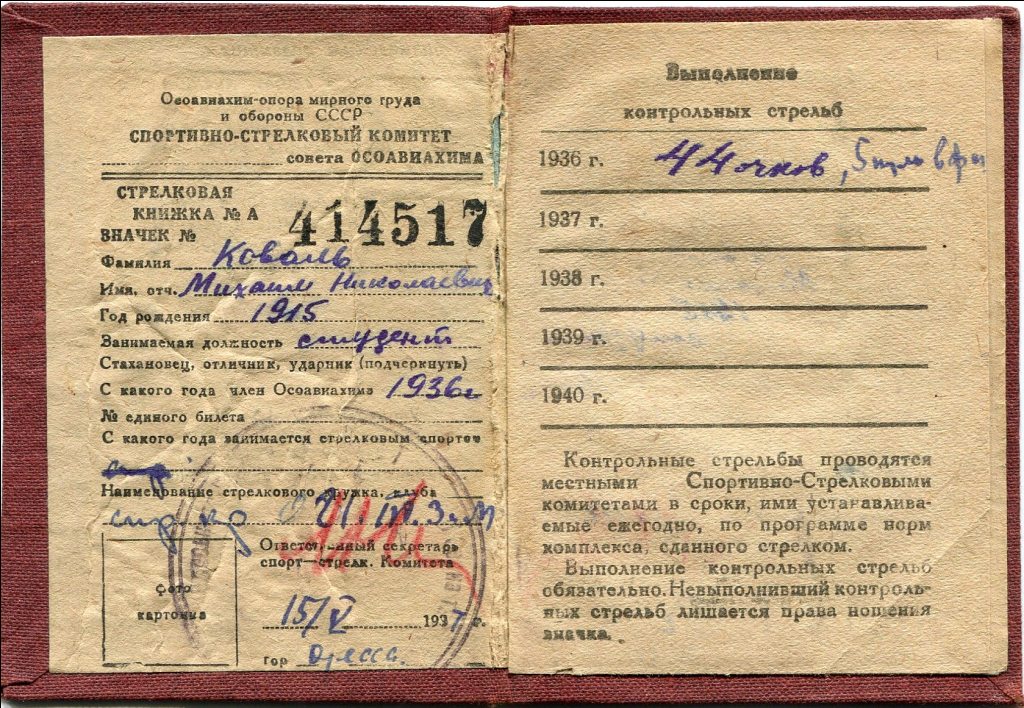 Осоавиахим-опора мирного труда
и обороны СССР
СПОРТИВНО-СТРЕЛКОВЫЙ КОМИТЕТ
совета ОСОАВИАХИМА
СТРЕЛКОВАЯ
КНИЖКА № А
ЗНАЧЕК № 414517
Фамилия Коваль
Имя, отч. Михаил Николаевич
Год рождения 1915
Занимаемая должность студент
Стахановец, отличник, ударник (подчеркнуть)
С какого года член Осоавиахима 1936 г
№ единого билета
С какого года занимается стрелковым спортом
Наименование стрелкового кружка, клуба
Ответственный секретарь
спорт—стрелк. Комитета
фото
карточка
15/V 1937 г.
гор Одесса.
Выполнение
контрольных стрельб
1936 г. 44 очков, 5
1937 г.
1938 г.
1939 г.
1940 г.
Контрольные стрельбы проводятся
местными Спортивно-Стрелковыми
комитетами в сроки, ими устанавлива-
емые ежегодно, по программе норм
комплекса, сданного стрелком.
Выполнение контрольных стрельб
обязательно. Невыполнивший контроль-
ных стрельб лишается права ношения
значка.